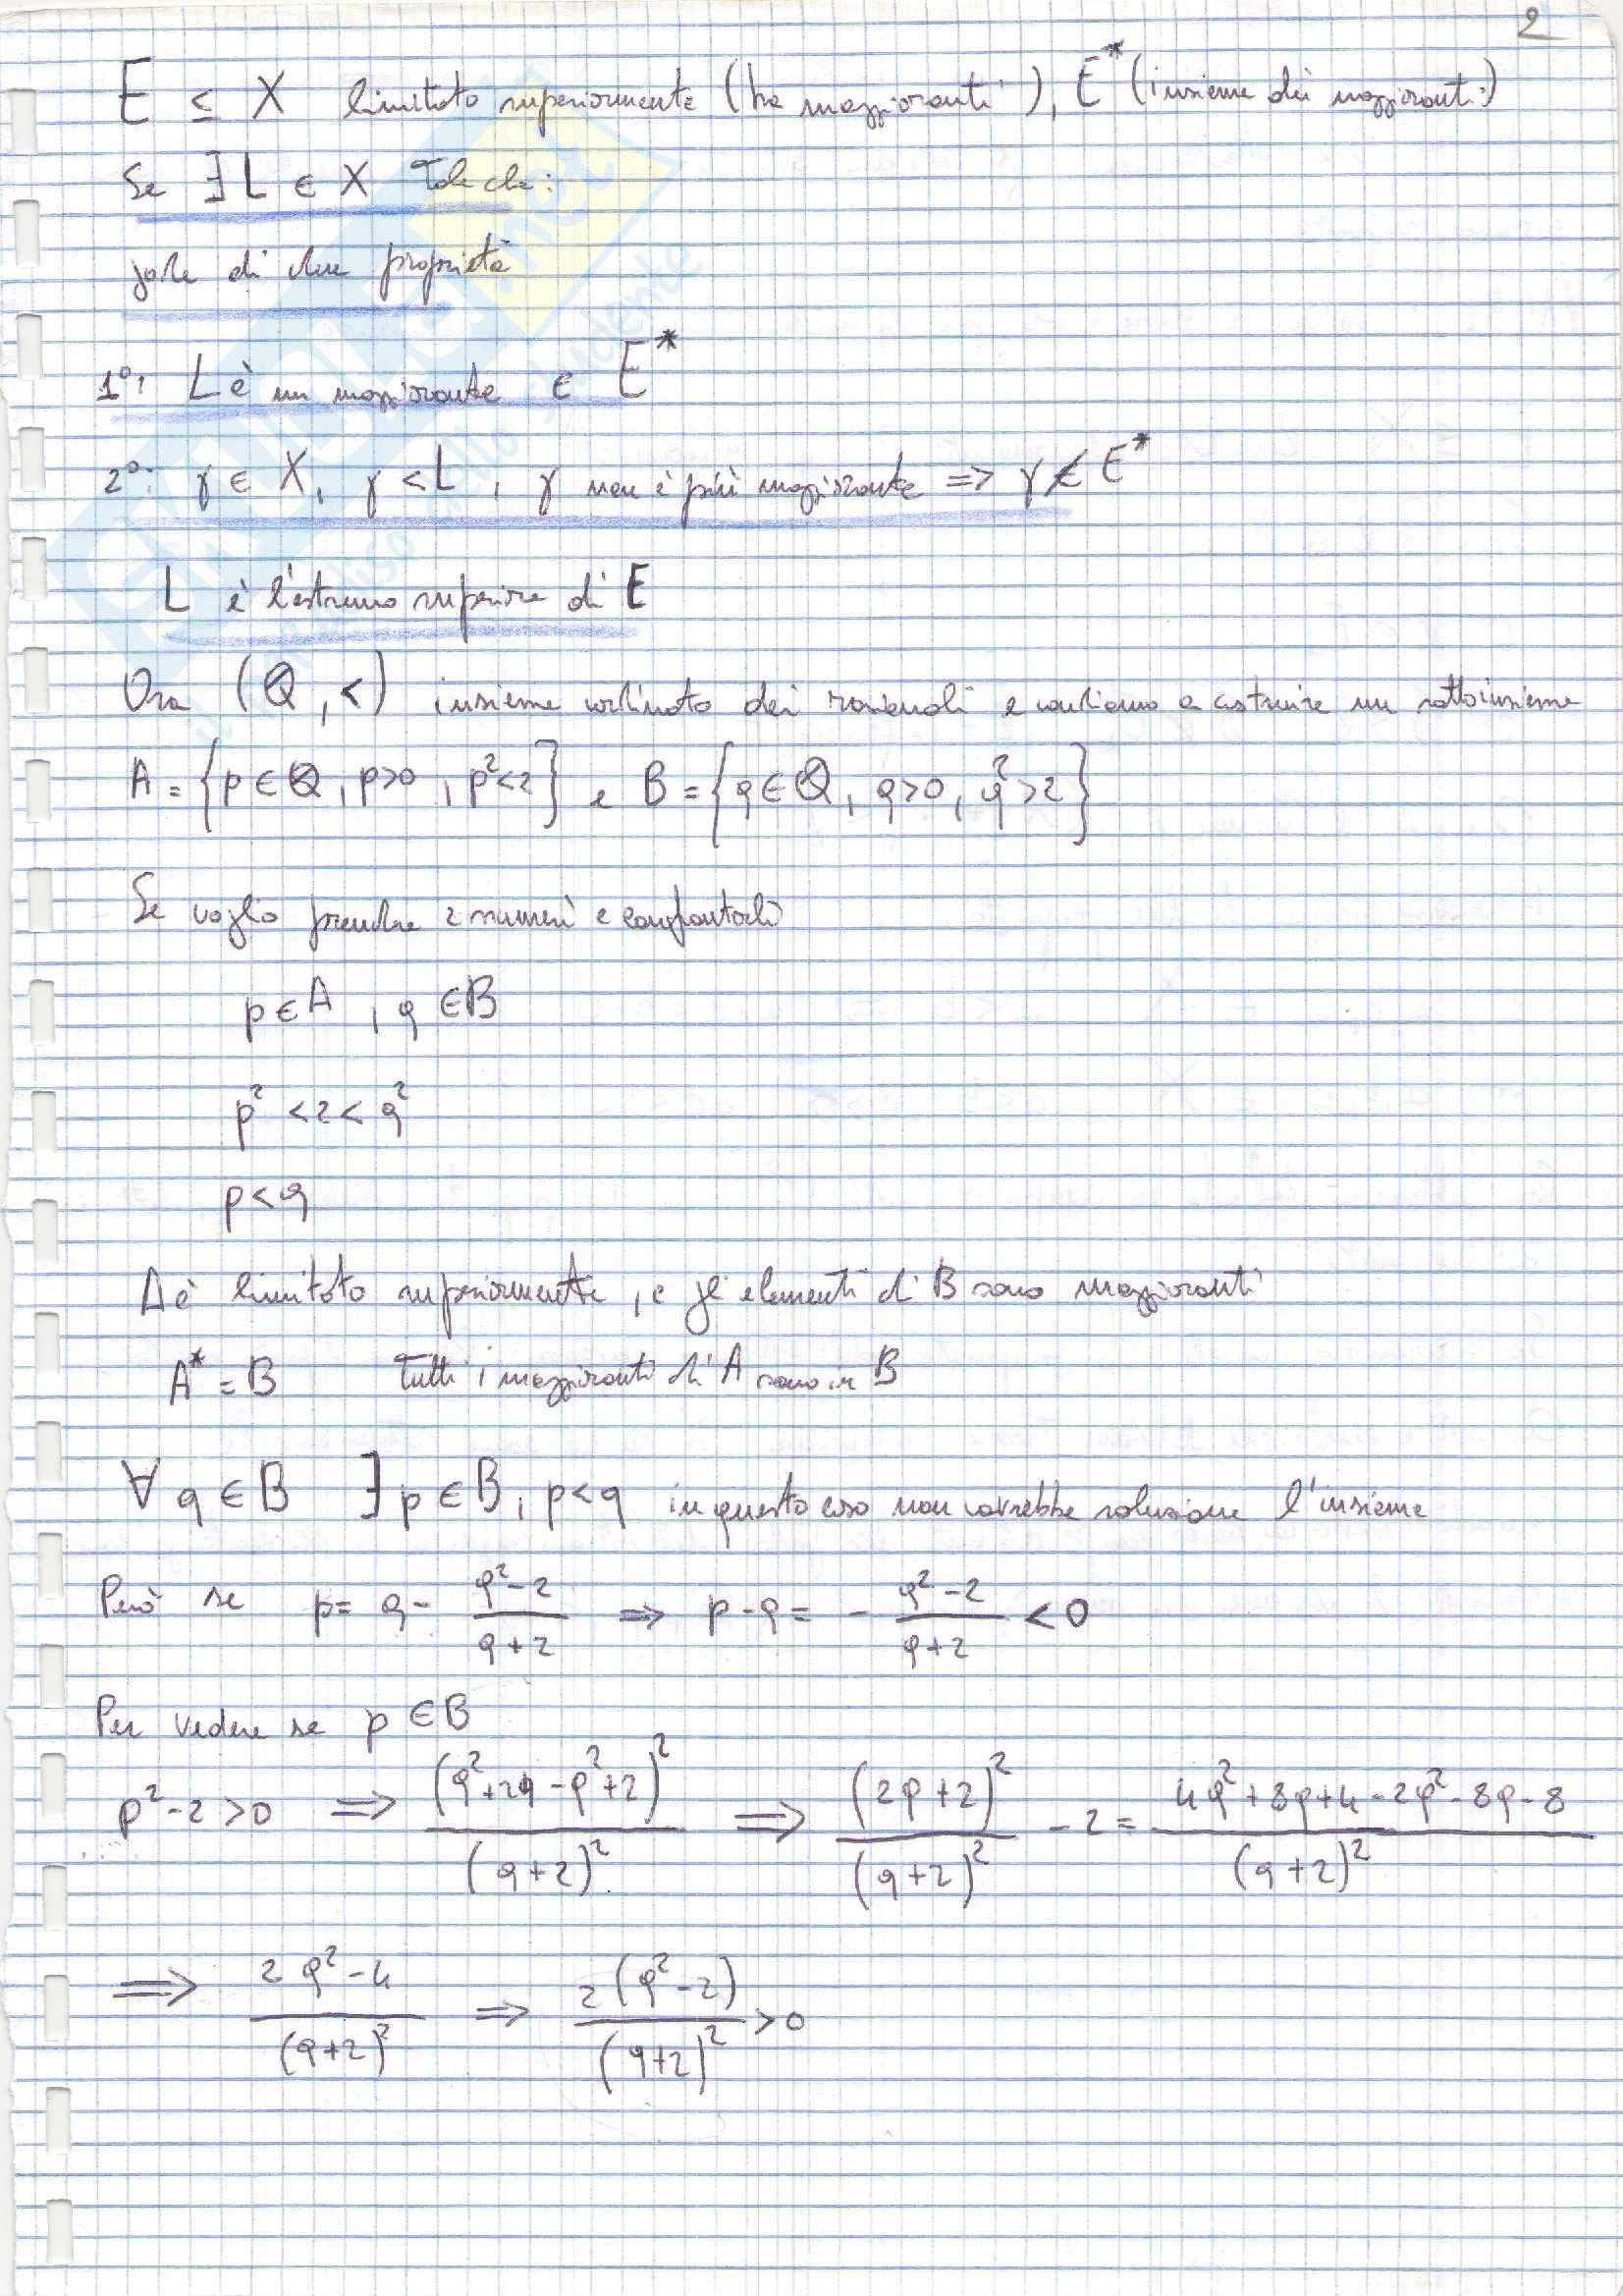 2
E ⊆ X limitato superiormente (ha maggioranti), E* (insieme dei maggioranti)
Se ∃ L ∈ X Tale che:
gode di due proprietà
1°: L è un maggiorante ∈ E*
2°: γ ∈ X, γ < L, γ non è più maggiorante => γ ∉ E*
L è l'estremo superiore di E
Ora (Q, <) insieme ordinato dei razionali e andiamo a costruire un sottoinsieme
A = {p ∈ Q, p>0, p²<2} e B = {q ∈ Q, q>0, q²>2}
Se voglio prendere 2 numeri e confrontarli
p ∈ A, q ∈ B
p² < 2 < q²
p < q
A è limitato superiormente, e gli elementi di B sono maggioranti
A* = B Tutti i maggioranti di A sono in B
∀ q ∈ B ∃ p ∈ B, p < q in questo caso non avrebbe soluzione l'insieme
Però se p = q - (q²-2)/(q+2) => p - q = - (q²-2)/(q+2) < 0
Per vedere se p ∈ B
p²-2>0 => (q²+2q-q²+2)²/(q+2)² => (2q+2)²/(q+2)² - 2 = (4q²+8q+4-2q²-8q-8)/(q+2)²
=> (2q²-4)/(q+2)² => 2(q²-2)/(q+2)² > 0